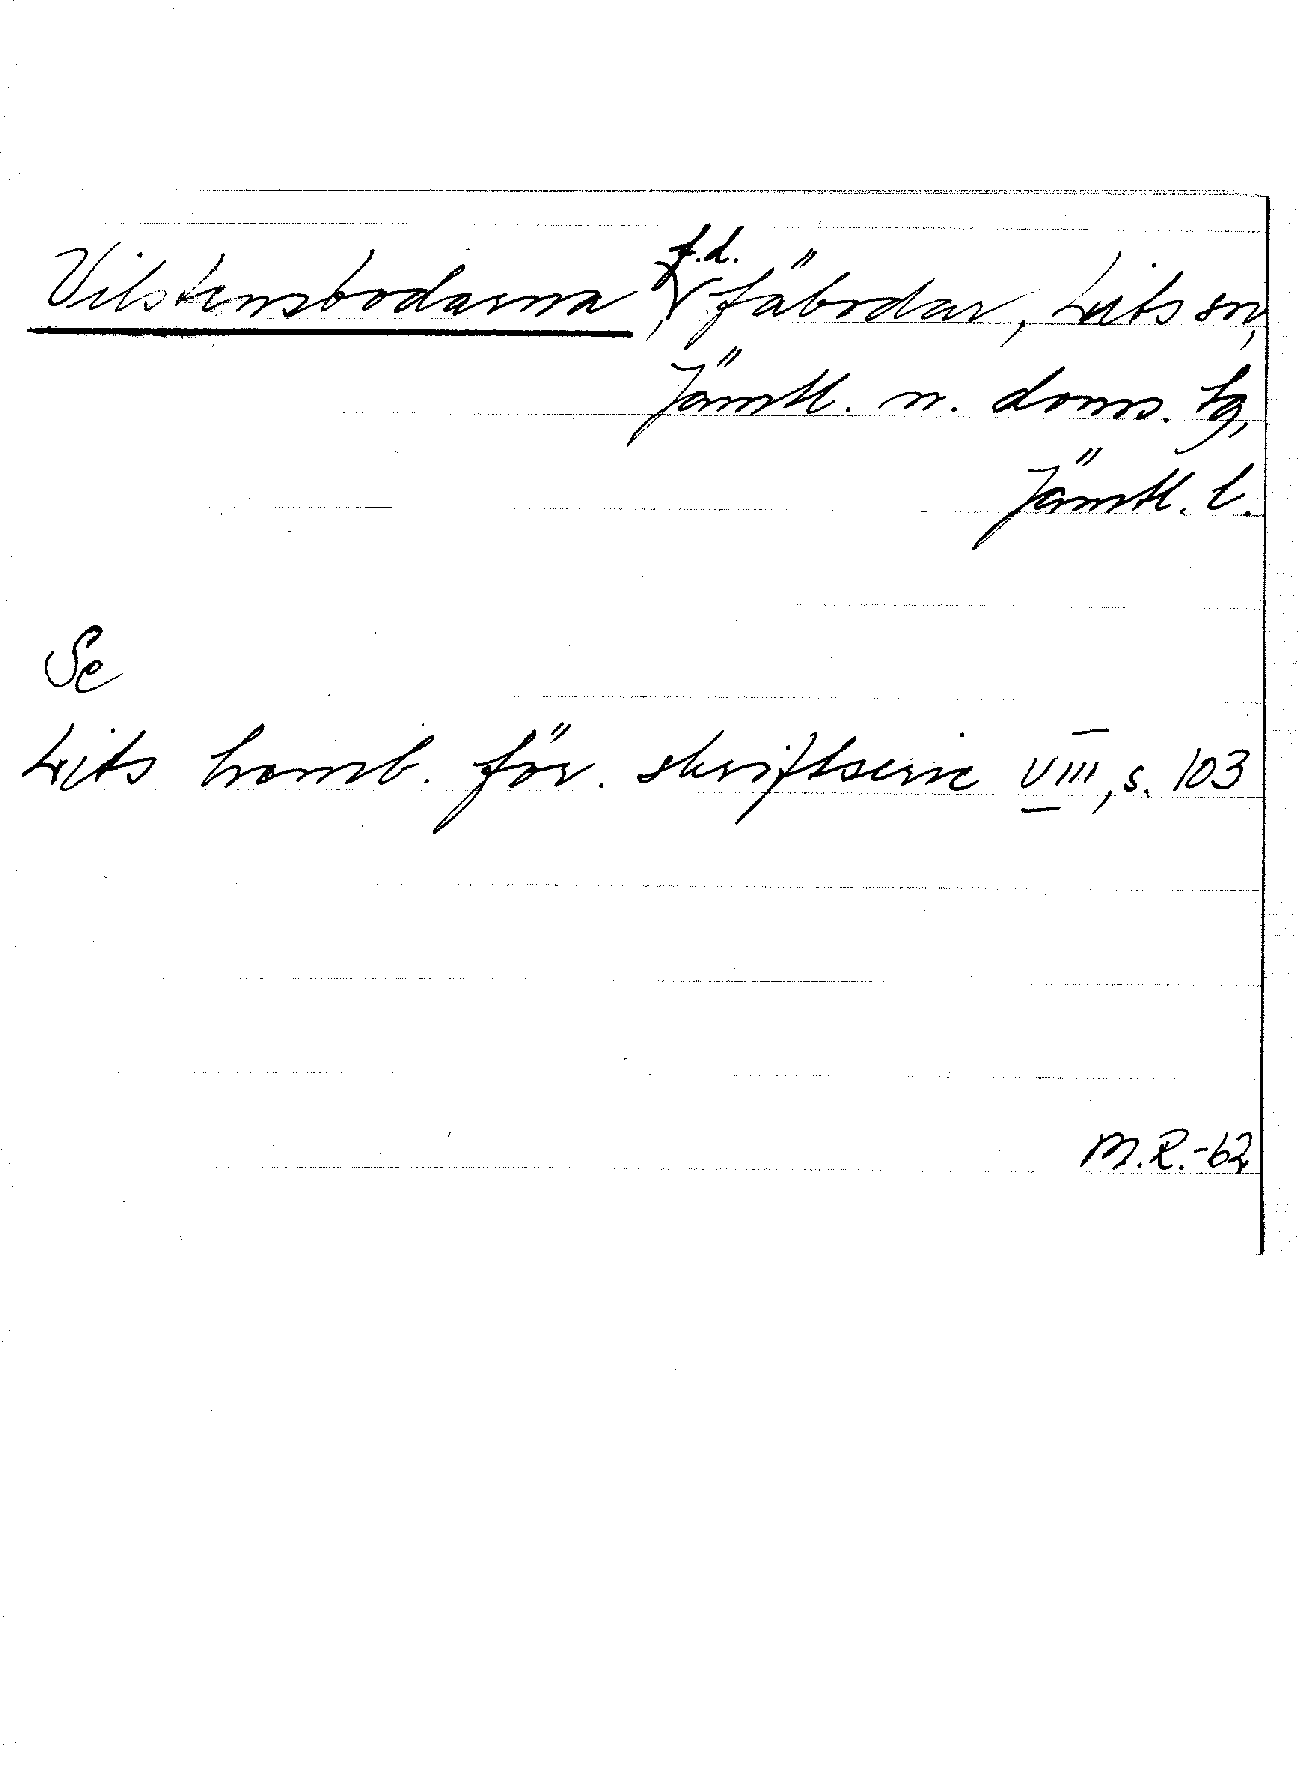 Vilstensbodarna, f.d. fäbodar, Lits sn,
Jämtl. n. doms. tg,
Jämtl. l.
Se
Lits hemb. för. skriftserie VIII, s. 103
M.R.-62